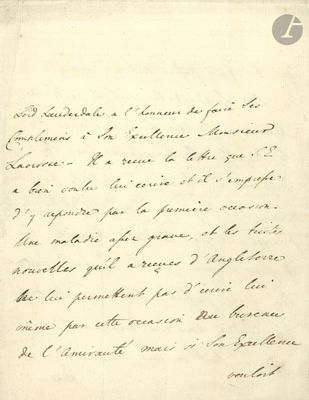 Lord Lauderdale a l'honneur de faire ses
Complimens à Son Excellence Monsieur
Lacrosse - Il a recue la lettre que S.E
a bien voulu lui ecrire et il s'empresse
d'y repondre par la premiere occasion.
Une maladie assez grave, et les tristes
nouvelles qu'il a reçues d'Angleterre
ne lui permettent pas d'ecrire lui
même par cette occasion au bureau
de l'Amirauté mais si Son Excellence
vouloit